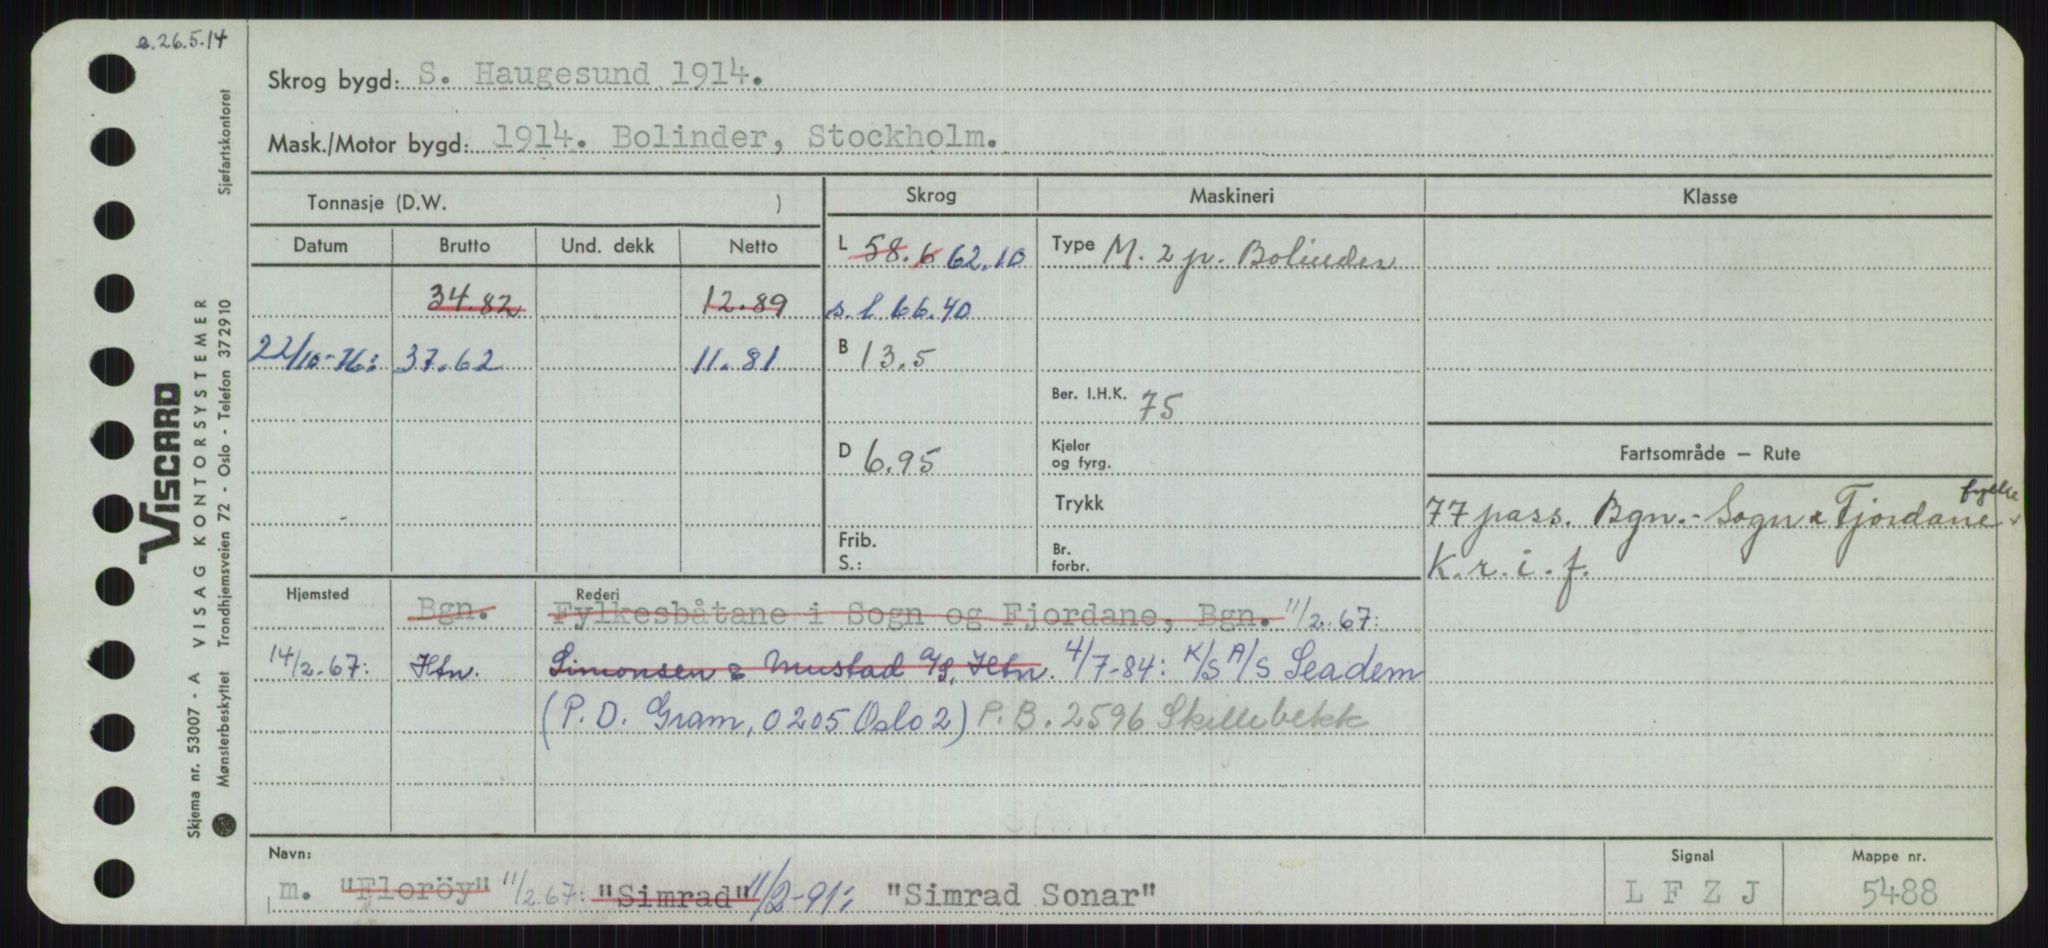 e. 26.5.14
Skrog bygd: S. Haugesund 1914.
Mask./Motor bygd: 1914. Bolinder, Stockholm.
Tonnasje (D.W. )
Skrog
Maskineri
Klasse
Datum Brutto Und. dekk Netto
L 58.6 62.10
Type M. 2 p. Bolinder
34.82 12.89
s. l 66.40
22/10-76: 37.62 11.81
B 13.5
Ber. I.H.K. 75
D 6.95
Kjeler
og fyrg.
Trykk
Frib.
S.:
Br.
forbr.
Fartsområde – Rute
77 pass. Bgn. - Sogn & Fjordane fylke
K. r. i. f.
Hjemsted Bgn. Rederi Fylkesbåtane i Sogn og Fjordane, Bgn. 11/2.67:
14/2-67: Htn. Simonsen & Mustad A/S, Htn. 4/7-84: K/S A/S Seadem
(P. D. Gram, 0205 Oslo 2) P. B. 2596 Skillebekk
Navn: m. "Floröy" 11/2.67: "Simrad" 11/2-91: "Simrad Sonar"
Signal LFZJ
Mappe nr. 5488
VISCARD
Skjema nr. 53007 - A VISAG KONTORSYSTEMER
Mønsterbeskyttet Trondhjemsveien 72 - Oslo - Telefon 372910 Sjøfartskontoret